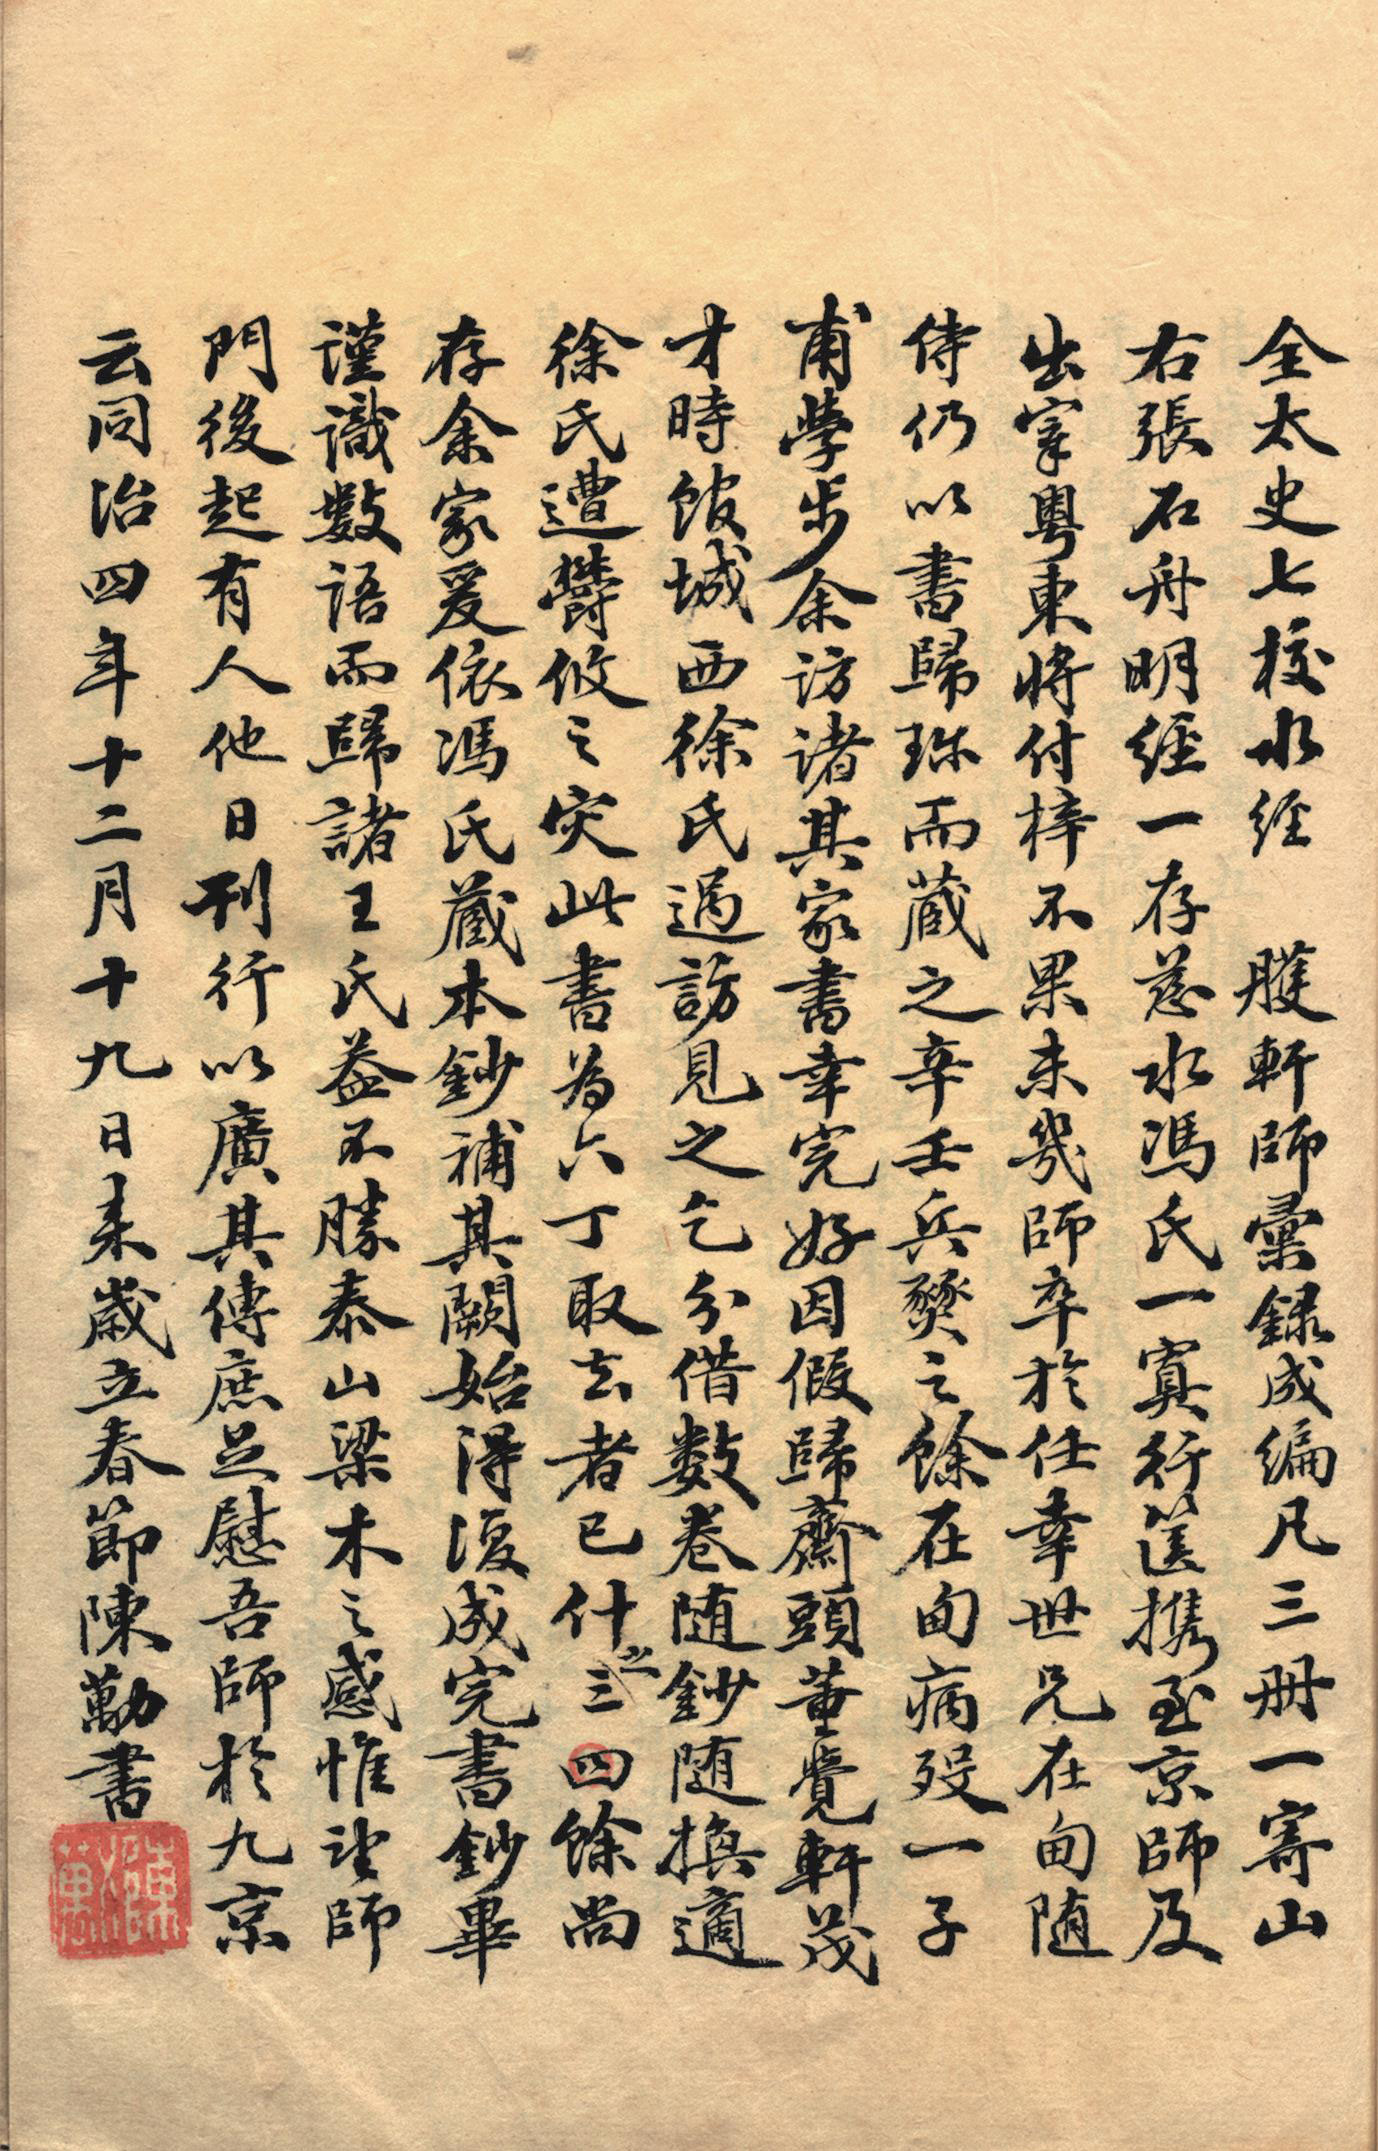 全太史七校水經　䑛軒師彙録成編凡三册一寄山
右張石舟明經一存慈水馮氏一寘行篋携至京師及
出宰粤東將付梓不果未幾師卒於任幸世兄在甸随
侍仍以書歸珎而藏之辛壬兵燹之餘在甸病殁一子
甫學步余訪諸其家書幸完好因假歸齋頭董覺軒茂
才時館城西徐氏過訪見之乞分借数卷随鈔随換適
徐氏遭欝攸之灾此書為六丁取去者已什之三四餘尚
存余家爰依馮氏藏本鈔補其闕始得復成完書鈔畢
謹識數語而歸諸王氏益不勝泰山梁木之感惟望師
門後起有人他日刊行以廣其傳庶足慰吾師於九京
云同治四年十二月十九日来歲立春節陳勱書